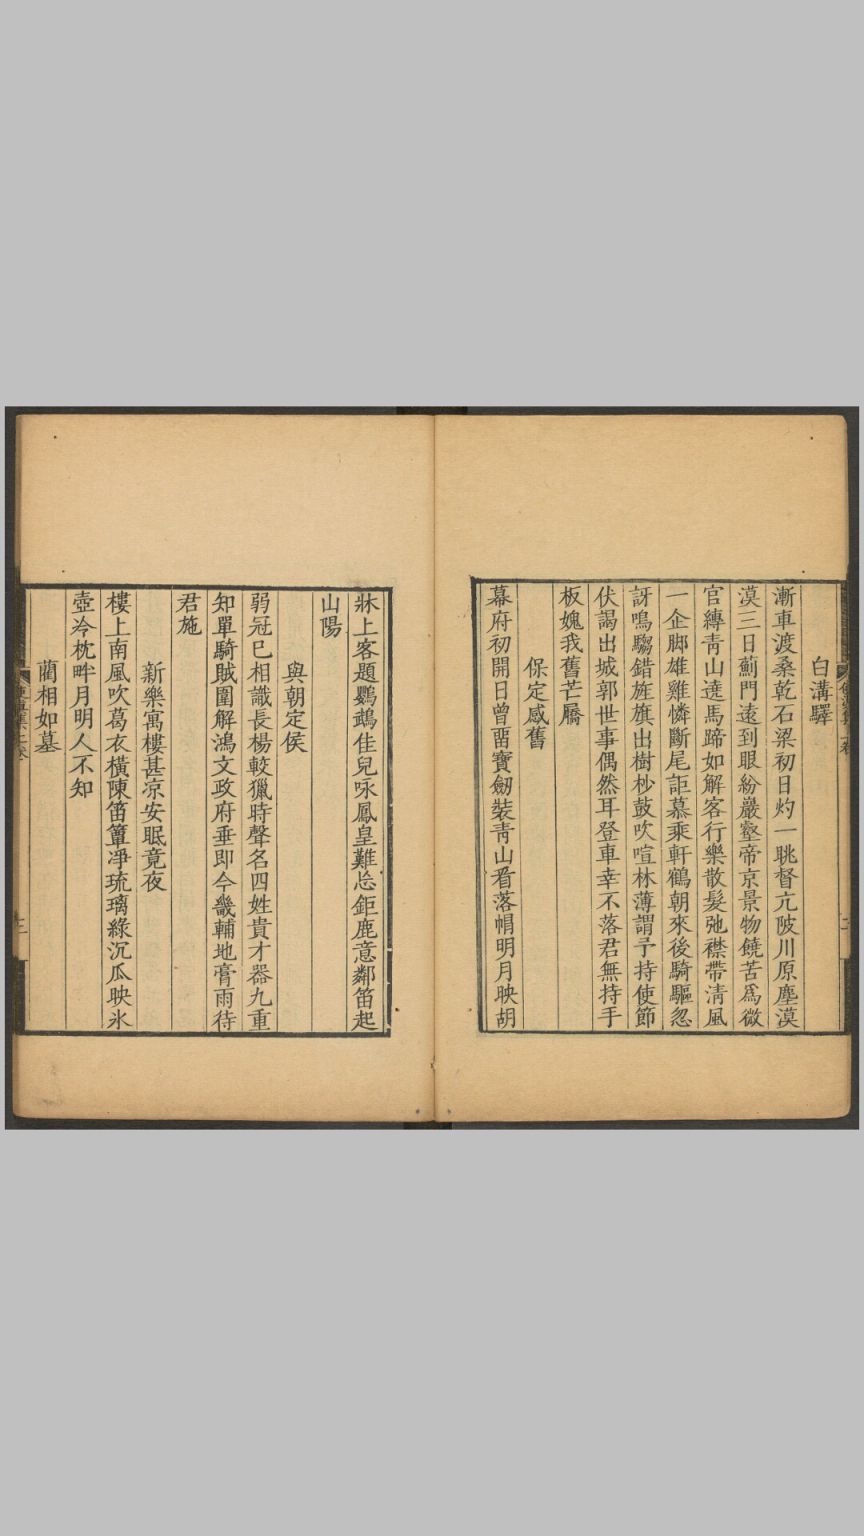 白溝驛
漸車渡桑乾石梁初日灼一眺督亢陂川原塵漠
漠三日薊門遠到眼紛巖壑帝京景物饒苦爲微
官縳靑山遶馬蹄如解客行樂散髮弛襟帶淸風
一企脚雄雞憐斷尾詎慕乘軒鶴朝來後騎驅忽
訝鳴騶錯旌旗出樹杪鼓吹喧林薄謂予持使節
伏謁出城郭世事偶然耳登車幸不落君無持手
板媿我舊芒屩
保定感舊
幕府初開日曾畱寶劒裝靑山看落帽明月映胡
牀上客題鸚鵡佳兒咏鳳皇難忘鉅鹿意鄰笛起
山陽
與朝定侯
弱冠已相識長楊較獵時聲名四姓貴才器九重
知單騎賊圍解鴻文政府垂卽今畿輔地膏雨待
君施
新樂寓樓甚凉安眠竟夜
樓上南風吹葛衣橫陳笛簟凈琉璃綠沉瓜映氷
壺冷枕畔月明人不知
藺相如墓